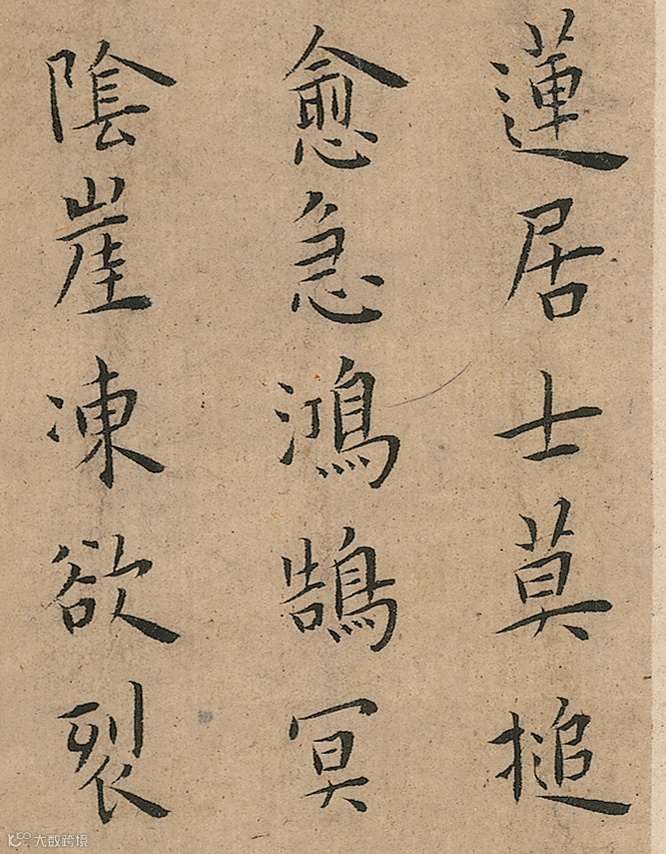 蓮居士莫槌
愈急鴻鵠冥
陰崖凍欲裂
大数跨境